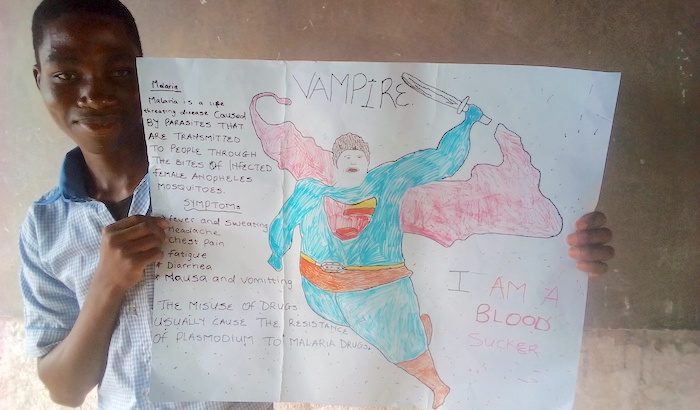 Malaria
VAMPIRE.
Malaria is a life
threating disease Caused
BY PARASITES THAT
ARE TRANSMITTED
TO PEOPLE THROUGH
THE BITES OF INFECTED
FEMALE ANOPHELES
MOSQUITOES.
SYMPTOMS
fever and sweating
Headache
Chest Pain
fatigue
Diarrhea
Nausa and vomitting
THE MISUSE OF DRUGS
USUALLY CAUSE THE RESISTANCE
OF PLASMODIUM TO MALARIA DRUGS.
I AM A
BLOOD
SUCKER